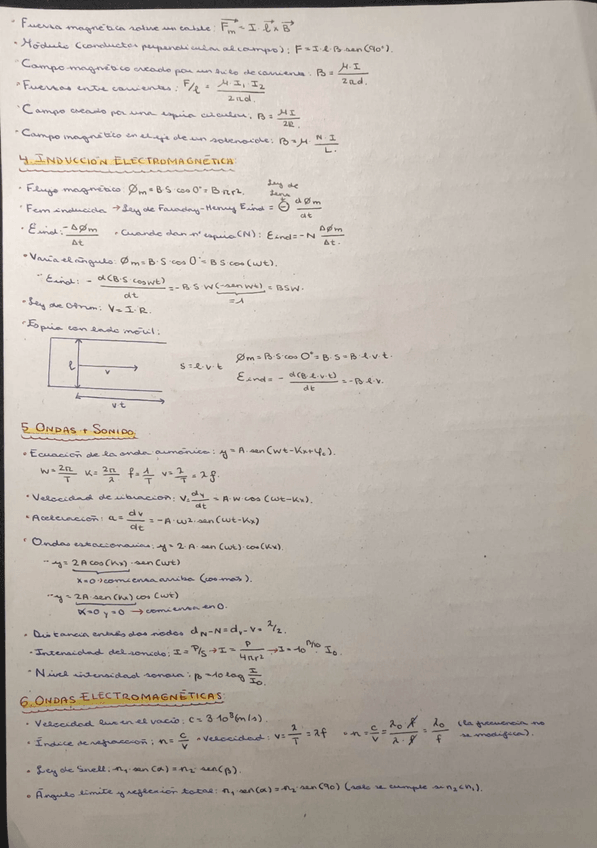 · Fuerza magnética sobre un cable: Fm = I · l × B
· Módulo (conductor perpendicular al campo): F = I · l · B · sen(90°).
· Campo magnético creado por un hilo de corriente. B = μ·I / 2πd.
· Fuerzas entre corrientes; F/l = μ·I₁·I₂ / 2πd.
· Campo creado por una espira circular; B = μI / 2R.
· Campo magnético en el eje de un solenoide; B = μ · N·I / L.
4. INDUCCIÓN ELECTROMAGNÉTICA
· Flujo magnético: Øm = B·S·cos 0° = B·π·r².
Ley de Lenz
· Fem inducida → Ley de Faraday-Henry Eind = ⊖ dØm / dt
· Eind: -ΔØm / Δt · Cuando dan nº espira (N): Eind = -N ΔØm / Δt.
· Varía el ángulo: Øm = B·S·cos 0° = B S cos(wt).
- Eind: - d(B·S·coswt) / dt = -B S W (-sen wt) = BSW.
= 1
· Ley de Ohm: V = I · R.
· Espira con lado móvil:
l v v·t
S = l·v·t
Øm = B·S·cos 0° = B·S = B·l·v·t.
Eind = - d(B·l·v·t) / dt = -B·l·v.
5 ONDAS + SONIDO
· Ecuación de la onda armónica: y = A·sen(wt-Kx+φ₀).
W = 2π/T K = 2π/λ f = 1/T v = λ/T = λ f.
· Velocidad de vibración; V = dy/dt = A·W cos (wt-Kx).
· Aceleración: a = dv/dt = -A·w²·sen(wt-Kx)
· Ondas estacionarias; y = 2·A·sen(wt)·cos(Kx).
- y = 2A cos(Kx) · sen(wt)
x=0 → comienza arriba (cos más).
- y = 2A·sen(kx)·cos(wt)
x=0 y=0 → comienza en 0.
· Distancia entre dos nodos dN-N = dv-v = λ/2.
· Intensidad del sonido; I = P/S → I = P / 4πr² → I = 10^(β/10) · I₀.
· Nivel intensidad sonora; β = 10 log I/I₀.
6. ONDAS ELECTROMAGNÉTICAS
· Velocidad luz en el vacío; c = 3·10⁸ (m/s).
· Índice de refracción; n = c/v · Velocidad: v = λ/T = λf · n = c/v = λ₀·f / λ·f = λ₀/f (la frecuencia no se modifica).
· Ley de Snell; n₁·sen(α) = n₂·sen(β).
· Ángulo límite y reflexión total: n₁·sen(α) = n₂·sen(90) (solo se cumple si n₂<n₁).